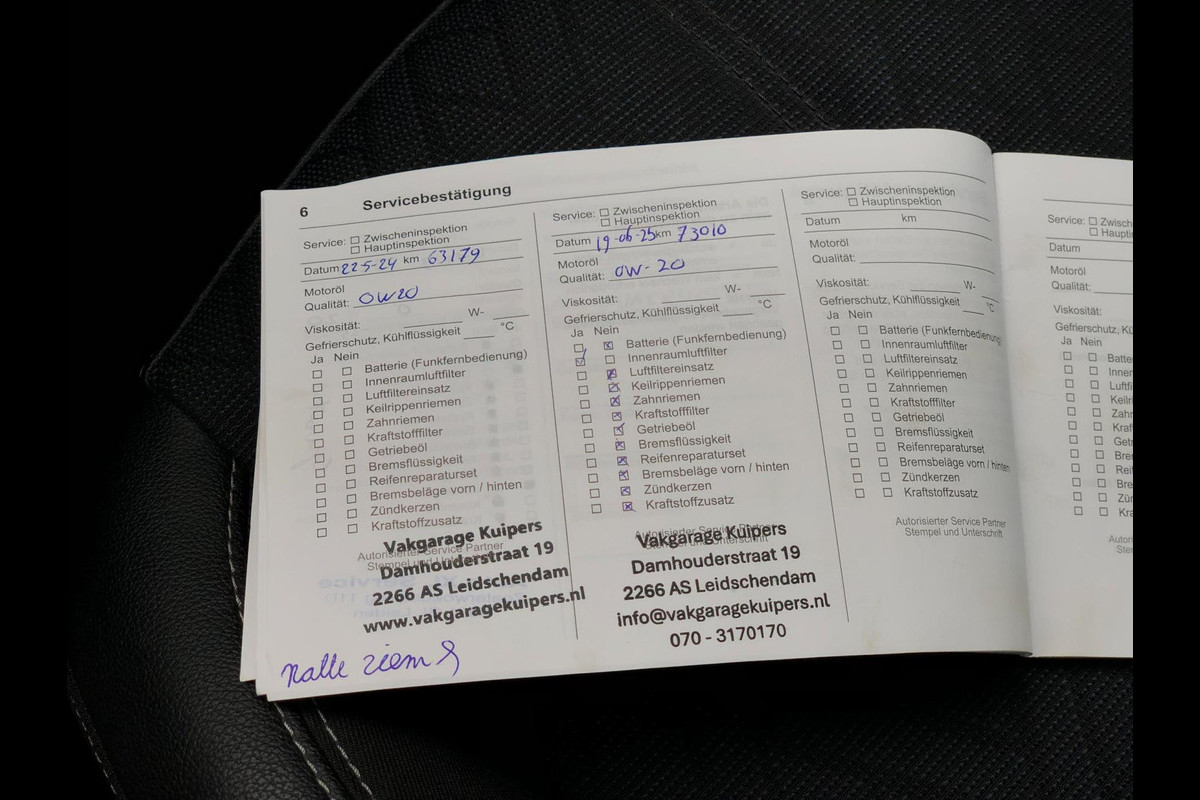 6 Servicebestätigung
Service: ☐ Zwischeninspektion
☐ Hauptinspektion
Datum 22-5-24 km 63179
Motoröl
Qualität: 0W20
Viskosität: ____ W- ____
Gefrierschutz, Kühlflüssigkeit ____ °C
Ja Nein
☐ ☐ Batterie (Funkfernbedienung)
☐ ☐ Innenraumluftfilter
☐ ☐ Luftfiltereinsatz
☐ ☐ Keilrippenriemen
☐ ☐ Zahnriemen
☐ ☐ Kraftstofffilter
☐ ☐ Getriebeöl
☐ ☐ Bremsflüssigkeit
☐ ☐ Reifenreparaturset
☐ ☐ Bremsbeläge vorn / hinten
☐ ☐ Zündkerzen
☐ ☐ Kraftstoffzusatz
Autorisierter Service Partner
Stempel und
Vakgarage Kuipers
Damhouderstraat 19
2266 AS Leidschendam
www.vakgaragekuipers.nl
Service: ☐ Zwischeninspektion
☐ Hauptinspektion
Datum 19-06-25 km 73010
Motoröl
Qualität: 0W-20
Viskosität: ____ W- ____
Gefrierschutz, Kühlflüssigkeit ____ °C
Ja Nein
☐ ☒ Batterie (Funkfernbedienung)
☑ ☐ Innenraumluftfilter
☐ ☒ Luftfiltereinsatz
☐ ☒ Keilrippenriemen
☐ ☒ Zahnriemen
☐ ☒ Kraftstofffilter
☐ ☒ Getriebeöl
☐ ☒ Bremsflüssigkeit
☐ ☒ Reifenreparaturset
☐ ☒ Bremsbeläge vorn / hinten
☐ ☒ Zündkerzen
☐ ☒ Kraftstoffzusatz
Autorisierter Service Partner
Stempel und Unterschrift
Vakgarage Kuipers
Damhouderstraat 19
2266 AS Leidschendam
info@vakgaragekuipers.nl
070 - 3170170
Service: ☐ Zwischeninspektion
☐ Hauptinspektion
Datum km
Motoröl
Qualität:
Viskosität: ____ W-
Gefrierschutz, Kühlflüssigkeit ____ °C
Ja Nein
☐ ☐ Batterie (Funkfernbedienung)
☐ ☐ Innenraumluftfilter
☐ ☐ Luftfiltereinsatz
☐ ☐ Keilrippenriemen
☐ ☐ Zahnriemen
☐ ☐ Kraftstofffilter
☐ ☐ Getriebeöl
☐ ☐ Bremsflüssigkeit
☐ ☐ Reifenreparaturset
☐ ☐ Bremsbeläge vorn / hinten
☐ ☐ Zündkerzen
☐ ☐ Kraftstoffzusatz
Autorisierter Service Partner
Stempel und Unterschrift
Service: ☐ Zwischeninsp
☐ Hauptinsp
Datum
Motoröl
Qualität:
Viskosität:
Gefrierschutz, Kühlflüs
Ja Nein
☐ ☐ Batte
☐ ☐ Innen
☐ ☐ Luftfi
☐ ☐ Keilr
☐ ☐ Zahr
☐ ☐ Kraft
☐ ☐ Getr
☐ ☐ Bre
☐ ☐ Reif
☐ ☐ Bre
☐ ☐ Zün
☐ ☐ Kra